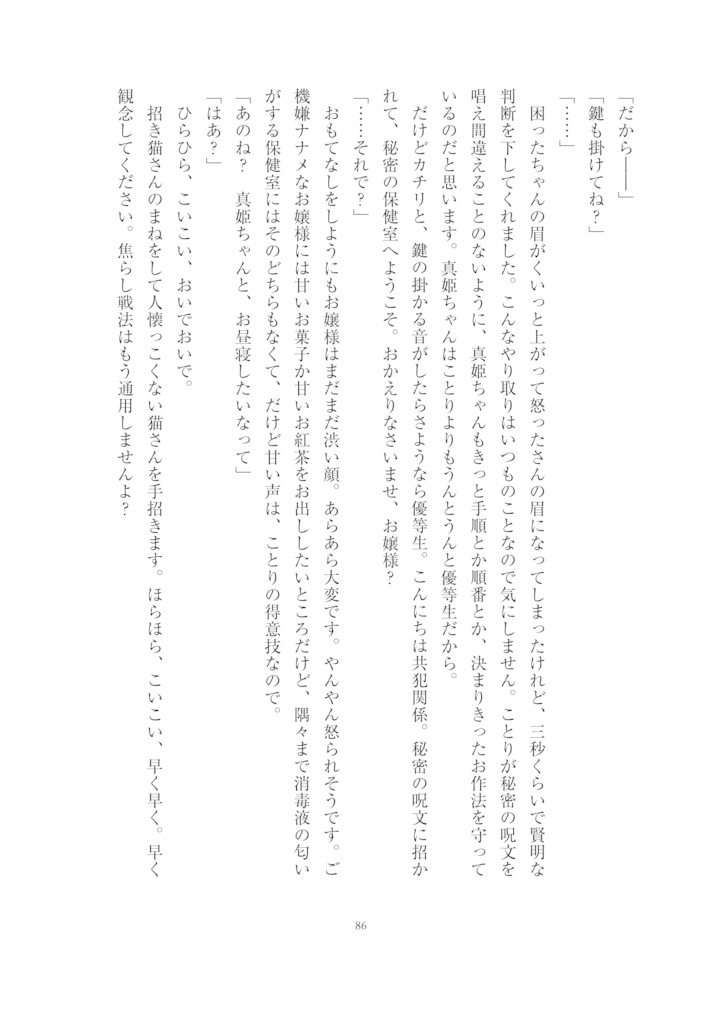 「だから――」
「鍵も掛けてね？」
「……」
　困ったちゃんの眉がくいっと上がって怒ったさんの眉になってしまったけれど、三秒くらいで賢明な
判断を下してくれました。こんなやり取りはいつものことなので気にしません。ことりが秘密の呪文を
唱え間違えることのないように、真姫ちゃんもきっと手順とか順番とか、決まりきったお作法を守って
いるのだと思います。真姫ちゃんはことりよりもうんとうんと優等生だから。
　だけどカチリと、鍵の掛かる音がしたらさようなら優等生。こんにちは共犯関係。秘密の呪文に招か
れて、秘密の保健室へようこそ。おかえりなさいませ、お嬢様？
「……それで？」
　おもてなしをしようにもお嬢様はまだまだ渋い顔。あらあら大変です。やんやん怒られそうです。ご
機嫌ナナメなお嬢様には甘いお菓子か甘いお紅茶をお出ししたいところだけど、隅々まで消毒液の匂い
がする保健室にはそのどちらもなくて、だけど甘い声は、ことりの得意技なので。
「あのね？　真姫ちゃんと、お昼寝したいなって」
「はあ？」
　ひらひら、こいこい、おいでおいで。
　招き猫さんのまねをして人懐っこくない猫さんを手招きます。ほらほら、こいこい、早く早く。早く
観念してください。焦らし戦法はもう通用しませんよ？
86